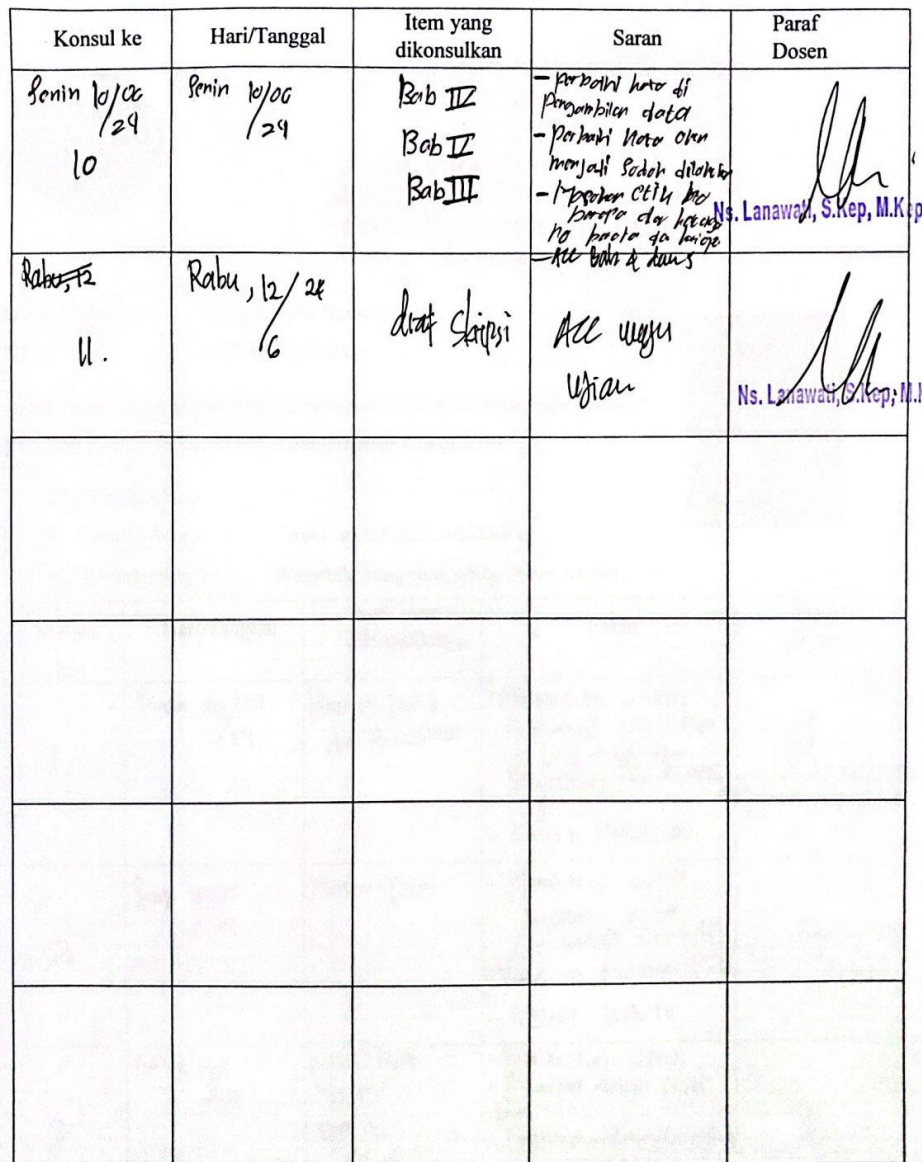 Konsul ke
Hari/Tanggal
Item yang
dikonsulkan
Saran
Paraf
Dosen
Senin 10/06
/24
10
Senin 10/06
/24
Bab IV
Bab V
Bab III
- perbaiki kata di
pengambilan data
- perbaiki kata akan
menjadi sudah
- etik no
berapa
no
- ACC
Ns. Lanawati, S.Kep, M.Kep
Rabu, 12
11.
Rabu, 12/24
/6
draf Skripsi
ACC maju
Ujian
Ns. Lanawati, S.Kep, M.K